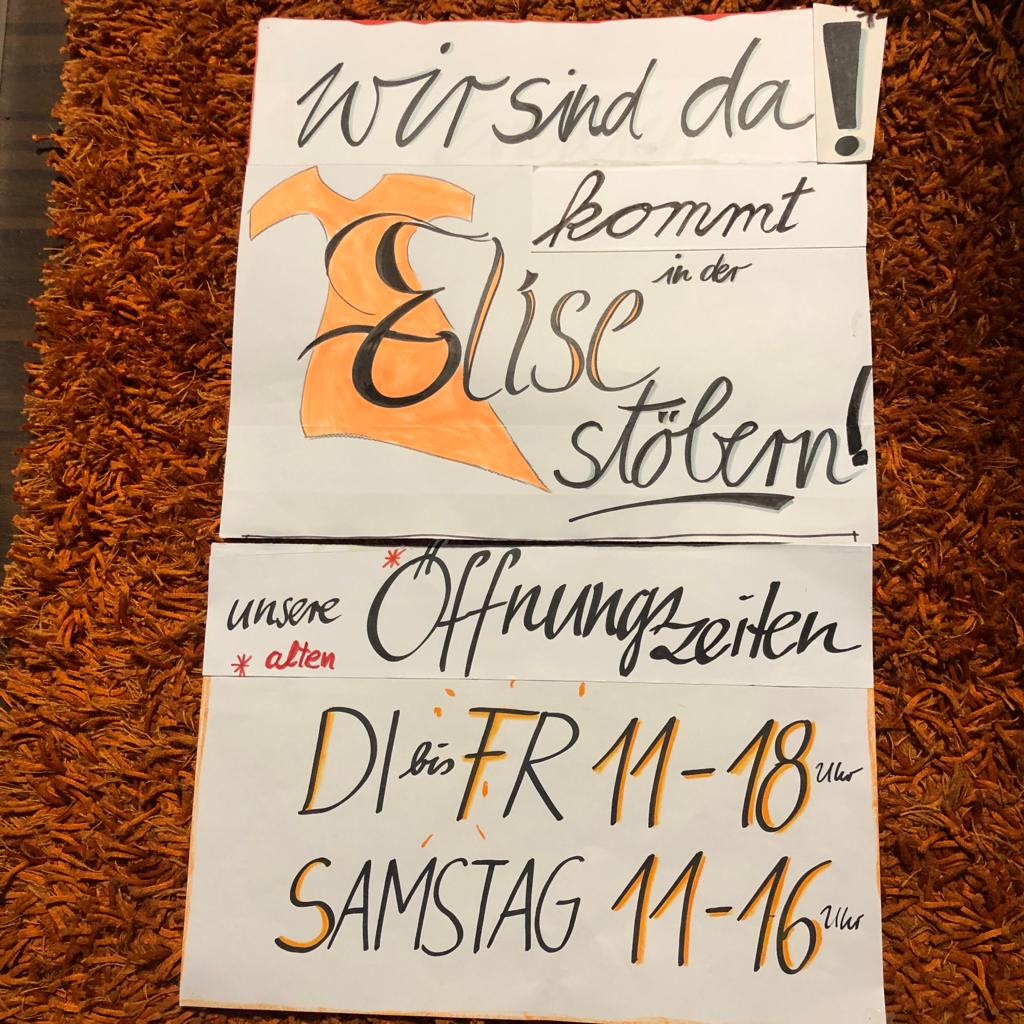 wir sind da!
kommt
in der
Elise
stöbern!
unsere *Öffnungszeiten
* alten
DI bis FR 11-18 Uhr
SAMSTAG 11-16 Uhr